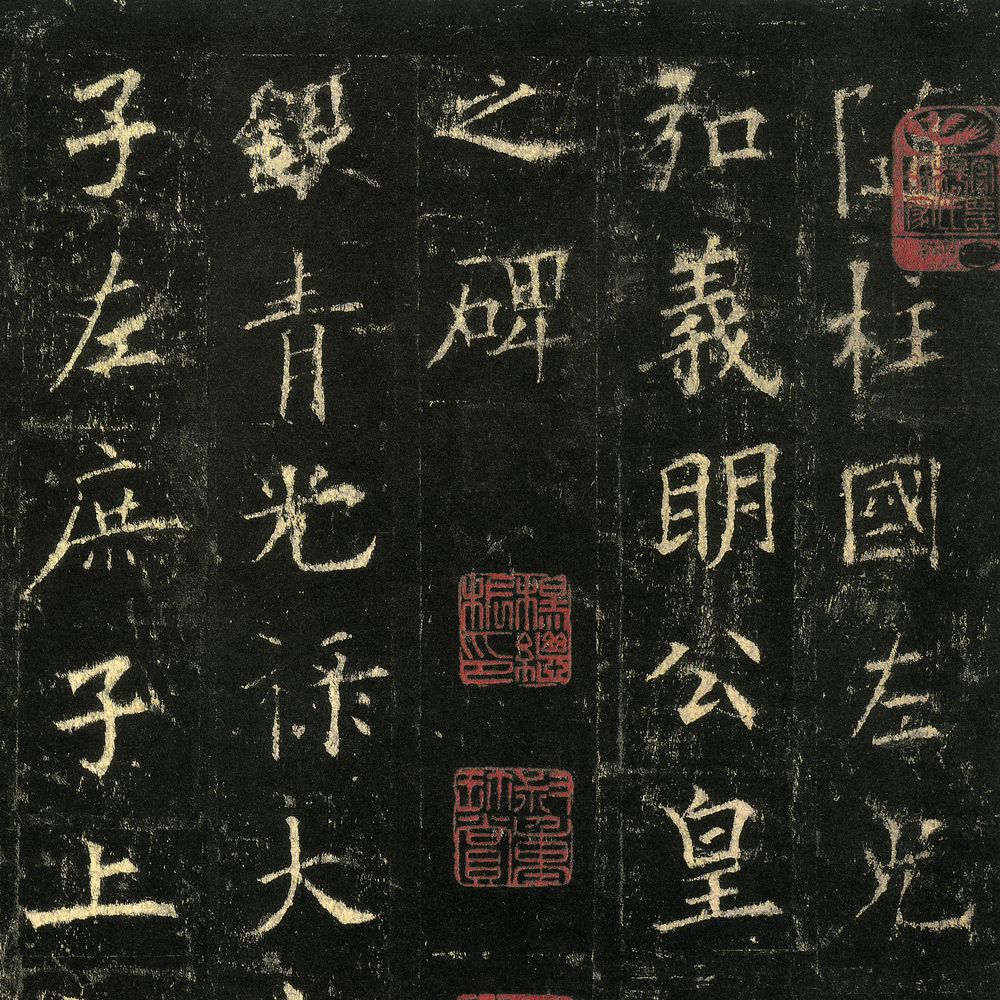 柱國左光
弘義明公皇
之碑
楊繼振印
銀青光祿大
子左庶子上